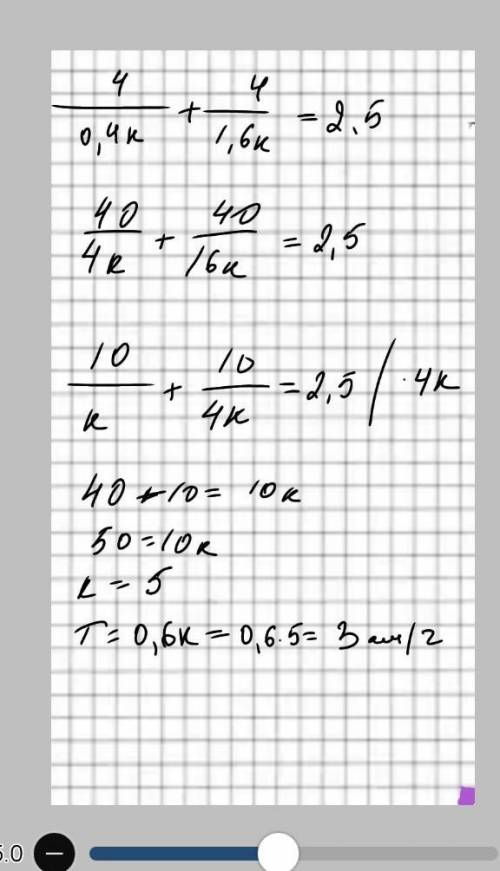 4/0,4к + 4/1,6к = 2,5
40/4к + 40/16к = 2,5
10/к + 10/4к = 2,5 / · 4к
40 + 10 = 10к
50 = 10к
к = 5
T = 0,6к = 0,6 · 5 = 3 км/г
5.0